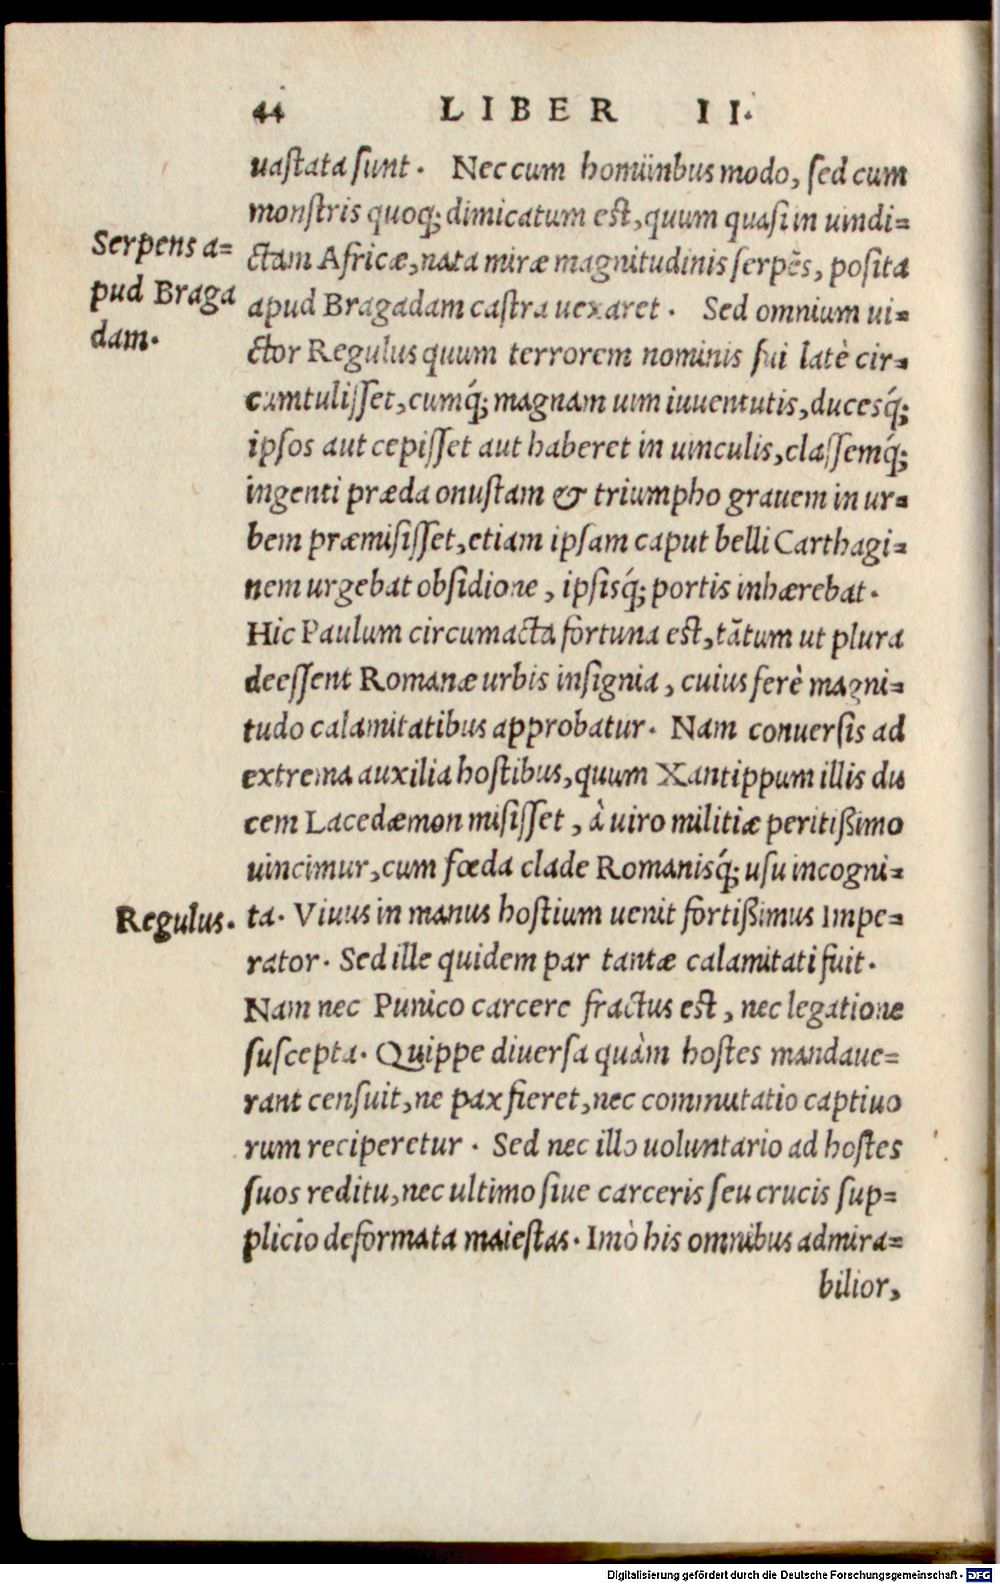 44 LIBER II.
uastata sunt. Nec cum hominibus modo, sed cum
monstris quoq; dimicatum est, quum quasi in uindi=
Serpens a=
ctam Africæ, nata miræ magnitudinis serpẽs, posita
pud Braga
apud Bragadam castra uexaret. Sed omnium ui=
dam.
ctor Regulus quum terrorem nominis sui latè cir=
cumtulisset, cumq́; magnam uim iuuentutis, ducesq́;
ipsos aut cepisset aut haberet in uinculis, classemq́;
ingenti præda onustam & triumpho grauem in ur=
bem præmisisset, etiam ipsam caput belli Carthagi=
nem urgebat obsidione, ipsisq́; portis inhærebat.
Hic Paulum circumacta fortuna est, tãtum ut plura
deessent Romanæ urbis insignia, cuius ferè magni=
tudo calamitatibus approbatur. Nam conuersis ad
extrema auxilia hostibus, quum Xantippum illis du
cem Lacedæmon misisset, à uiro militiæ peritißimo
uincimur, cum fœda clade Romanisq́; usu incogni=
Regulus.
ta. Viuus in manus hostium uenit fortißimus Impe=
rator. Sed ille quidem par tantæ calamitati fuit.
Nam nec Punico carcere fractus est, nec legatione
suscepta. Quippe diuersa quàm hostes mandaue=
rant censuit, ne pax fieret, nec commutatio captiuo
rum reciperetur. Sed nec illo uoluntario ad hostes
suos reditu, nec ultimo siue carceris seu crucis sup=
plicio deformata maiestas. Imò his omnibus admira=
bilior,
Digitalisierung gefördert durch die Deutsche Forschungsgemeinschaft - DFG